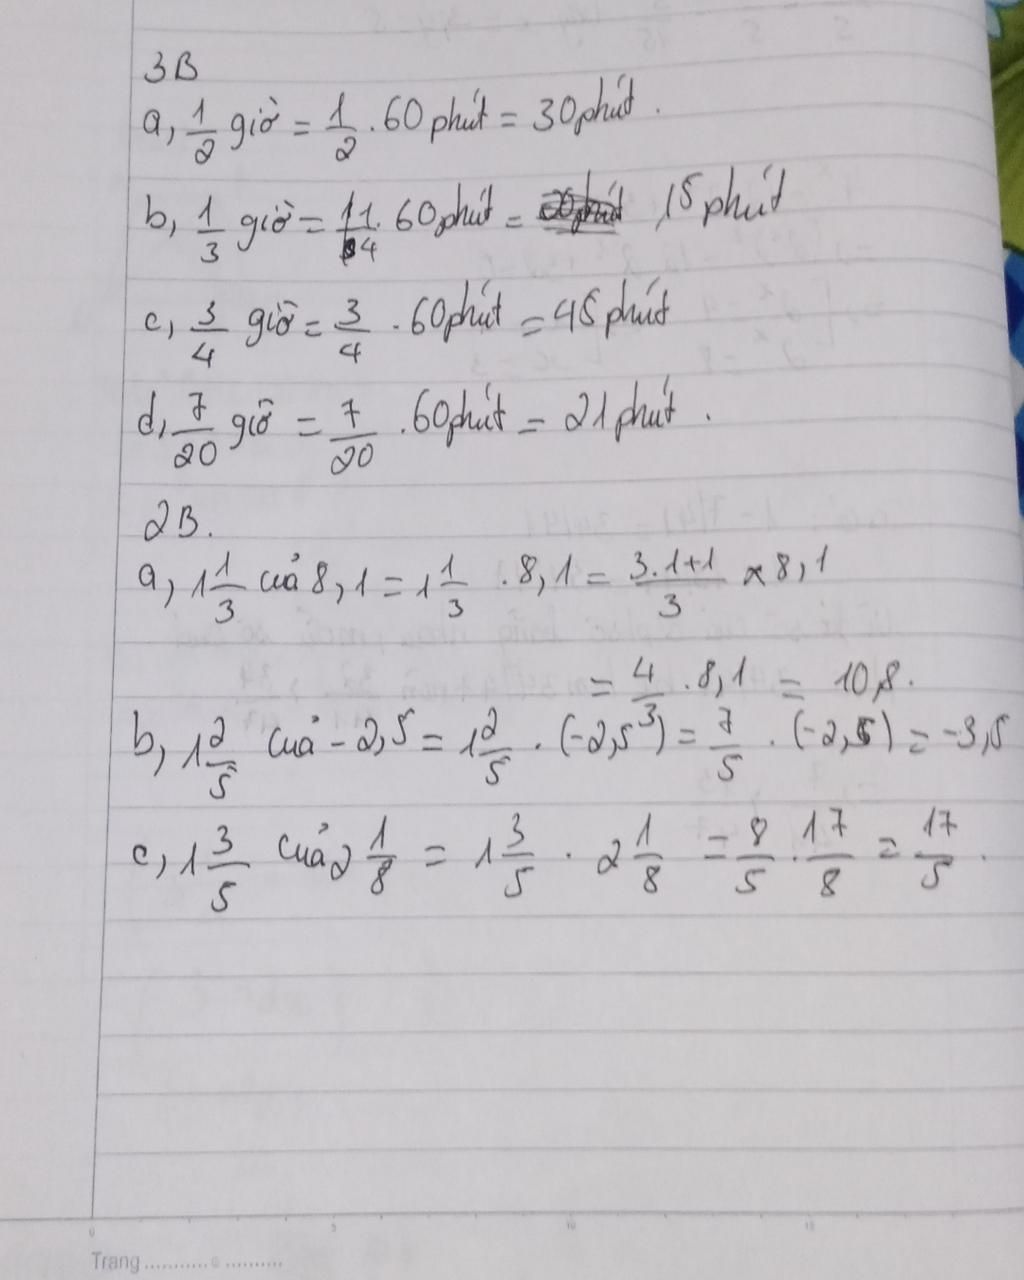 3B
a, 1/2 giờ = 1/2 . 60 phút = 30 phút.
b, 1/3 giờ = 11/4 . 60 phút = 15 phút
c, 3/4 giờ = 3/4 . 60 phút = 45 phút
d, 7/20 giờ = 7/20 . 60 phút = 21 phút.
2B.
a, 1 1/3 của 8,1 = 1 1/3 . 8,1 = 3.1+1/3 x 8,1
= 4/3 . 8,1 = 10,8.
b, 1 2/5 của -2,5 = 1 2/5 . (-2,5) = 7/5 . (-2,5) = -3,5
c, 1 3/5 của 2 1/8 = 1 3/5 . 2 1/8 = 8/5 . 17/8 = 17/5.
0 5 10 15
Trang